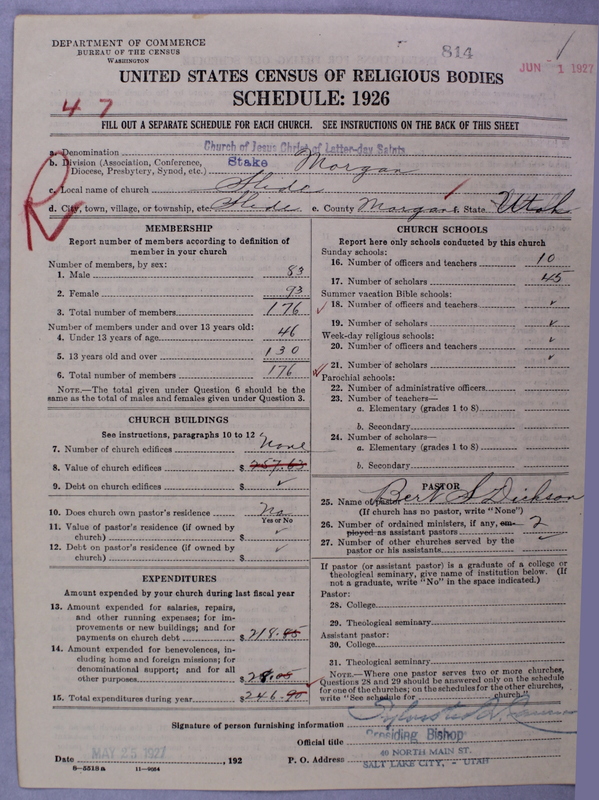 DEPARTMENT OF COMMERCE
BUREAU OF THE CENSUS
WASHINGTON
814
1
JUN 1 1927
UNITED STATES CENSUS OF RELIGIOUS BODIES
SCHEDULE: 1926
4 7
FILL OUT A SEPARATE SCHEDULE FOR EACH CHURCH. SEE INSTRUCTIONS ON THE BACK OF THIS SHEET
R
a. Denomination Church of Jesus Christ of Latter-day Saints
b. Division (Association, Conference, Diocese, Presbytery, Synod, etc.) Stake Morgan
c. Local name of church Slide
d. City, town, village, or township, etc. Slide e. County Morgan f. State Utah
MEMBERSHIP
Report number of members according to definition of
member in your church
Number of members, by sex:
1. Male 83
2. Female 93
3. Total number of members 176
Number of members under and over 13 years old:
4. Under 13 years of age 46
5. 13 years old and over 130
6. Total number of members 176
NOTE.—The total given under Question 6 should be
same as the total of males and females given under Question 3.
CHURCH BUILDINGS
See instructions, paragraphs 10 to 12
7. Number of church edifices None
8. Value of church edifices $
9. Debt on church edifices $ ✓
10. Does church own pastor's residence No
Yes or No
11. Value of pastor's residence (if owned by
church) $ ✓
12. Debt on pastor's residence (if owned by
church) $ ✓
EXPENDITURES
Amount expended by your church during last fiscal year
13. Amount expended for salaries, repairs,
and other running expenses; for im-
provements or new buildings; and for
payments on church debt $ 218.
14. Amount expended for benevolences, in-
cluding home and foreign missions; for
denominational support; and for all
other purposes $ 28.
15. Total expenditures during year $ 246.
CHURCH SCHOOLS
Report here only schools conducted by this church
Sunday schools:
16. Number of officers and teachers 10
17. Number of scholars 45
Summer vacation Bible schools:
18. Number of officers and teachers ✓
19. Number of scholars ✓
Week-day religious schools:
20. Number of officers and teachers ✓
21. Number of scholars ✓
Parochial schools:
22. Number of administrative officers
23. Number of teachers—
a. Elementary (grades 1 to 8)
b. Secondary
24. Number of scholars—
a. Elementary (grades 1 to 8)
b. Secondary
PASTOR
25. Name of pastor Bert S Dickson
(If church has no pastor, write "None")
26. Number of ordained ministers, if any, em-
ployed as assistant pastors 2
27. Number of other churches served by the
pastor or his assistants ✓
If pastor (or assistant pastor) is a graduate of a college or
theological seminary, give name of institution below. (If
not a graduate, write "No" in the space indicated.)
Pastor:
28. College
29. Theological seminary
Assistant pastor:
30. College
31. Theological seminary
NOTE.—Where one pastor serves two or more churches,
Questions 28 and 29 should be answered only on the schedule
for one of the churches; on the schedules for the other churches,
write "See schedule for church."
Signature of person furnishing information
Official title Presiding Bishop
Date MAY 25 1927, 192 P. O. Address 40 NORTH MAIN ST.
SALT LAKE CITY, - UTAH
8—5518a 11—9054